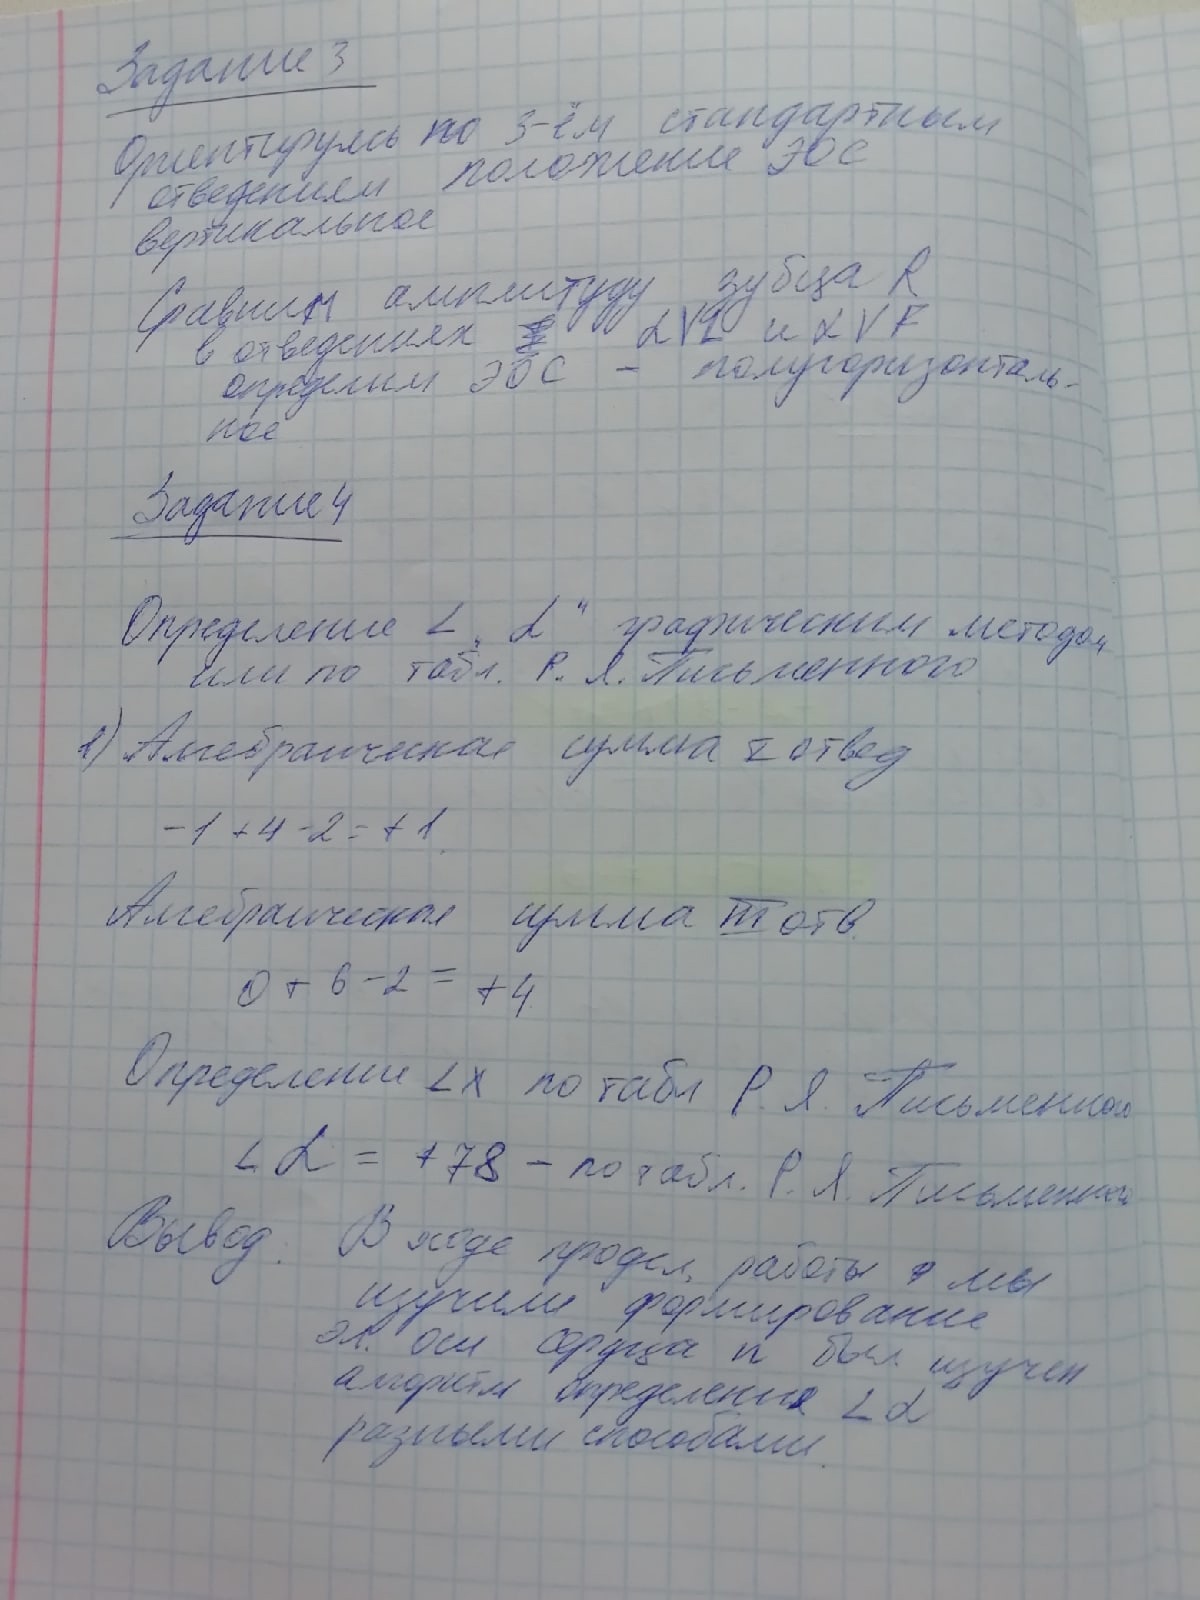 Задание 3
Ориентируясь по 3-ём стандартным
отведениям положение ЭОС
вертикальное
Сравним амплитуду зубца R
в отведениях αVL и αVF
определим ЭОС – полугоризонталь-
ное
Задание 4
Определение ∠ „α" графическим методом
или по табл. Р. Я. Письменного
1) Алгебраическая сумма I отвед
-1 +4 -2 = +1
Алгебраическая сумма III отв.
0 + 6 - 2 = +4
Определение ∠α по табл Р. Я. Письменного
∠ α = +78 – по табл. Р. Я. Письменного
Вывод: В ходе продел. работы мы
изучили формирование
эл. оси сердца и был изучен
алгоритм определения ∠α
разными способами.